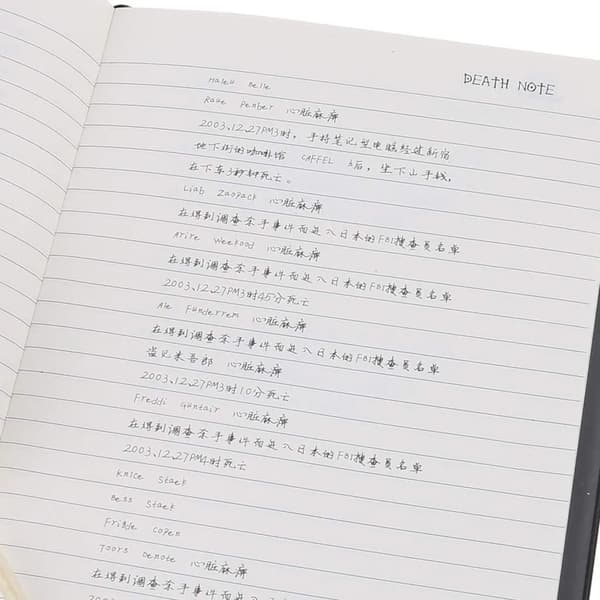 DEATH NOTE
Haleu Belle
Raue Penber 心脏麻痹
2003,12,27PM3时，手持笔记型电脑经过新宿
地下街的咖啡馆 CAFFEL 后，坐下山手线，
在下车3秒钟死亡。
Liab Zaopack 心脏麻痹
在得到调查杀手事件而进入日本的FBI搜查员名单
Arire Weekood 心脏麻痹
在得到调查杀手事件而进入日本的FBI搜查员名单
2003,12,27PM3时45分死亡
Ale Funderrem 心脏麻痹
在得到调查杀手事件而进入日本的FBI搜查员名单
盗记未吾郎 心脏麻痹
2003,12,27PM3时10分死亡
Freddi Guntair 心脏麻痹
在得到调查杀手事件而进入日本的FBI搜查员名单
2003,12,27PM4时死亡
Knice Staek
Bess Staek
Fridde Copen
Toors Denote 心脏麻痹
在得到调查杀手事件而进入日本的FBI搜查员名单